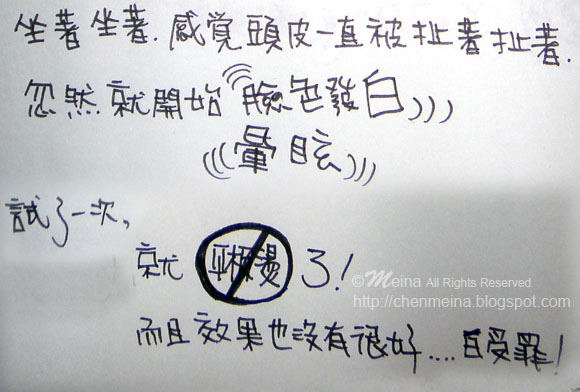 坐著坐著.感覺頭皮一直被扯著扯著.
忽然就開始臉色發白)))
(((暈眩)))
試了一次,
就 平板燙 了!
©Meina All Rights Reserved
http://chenmeina.blogspot.com
而且效果也沒有很好....白受罪!